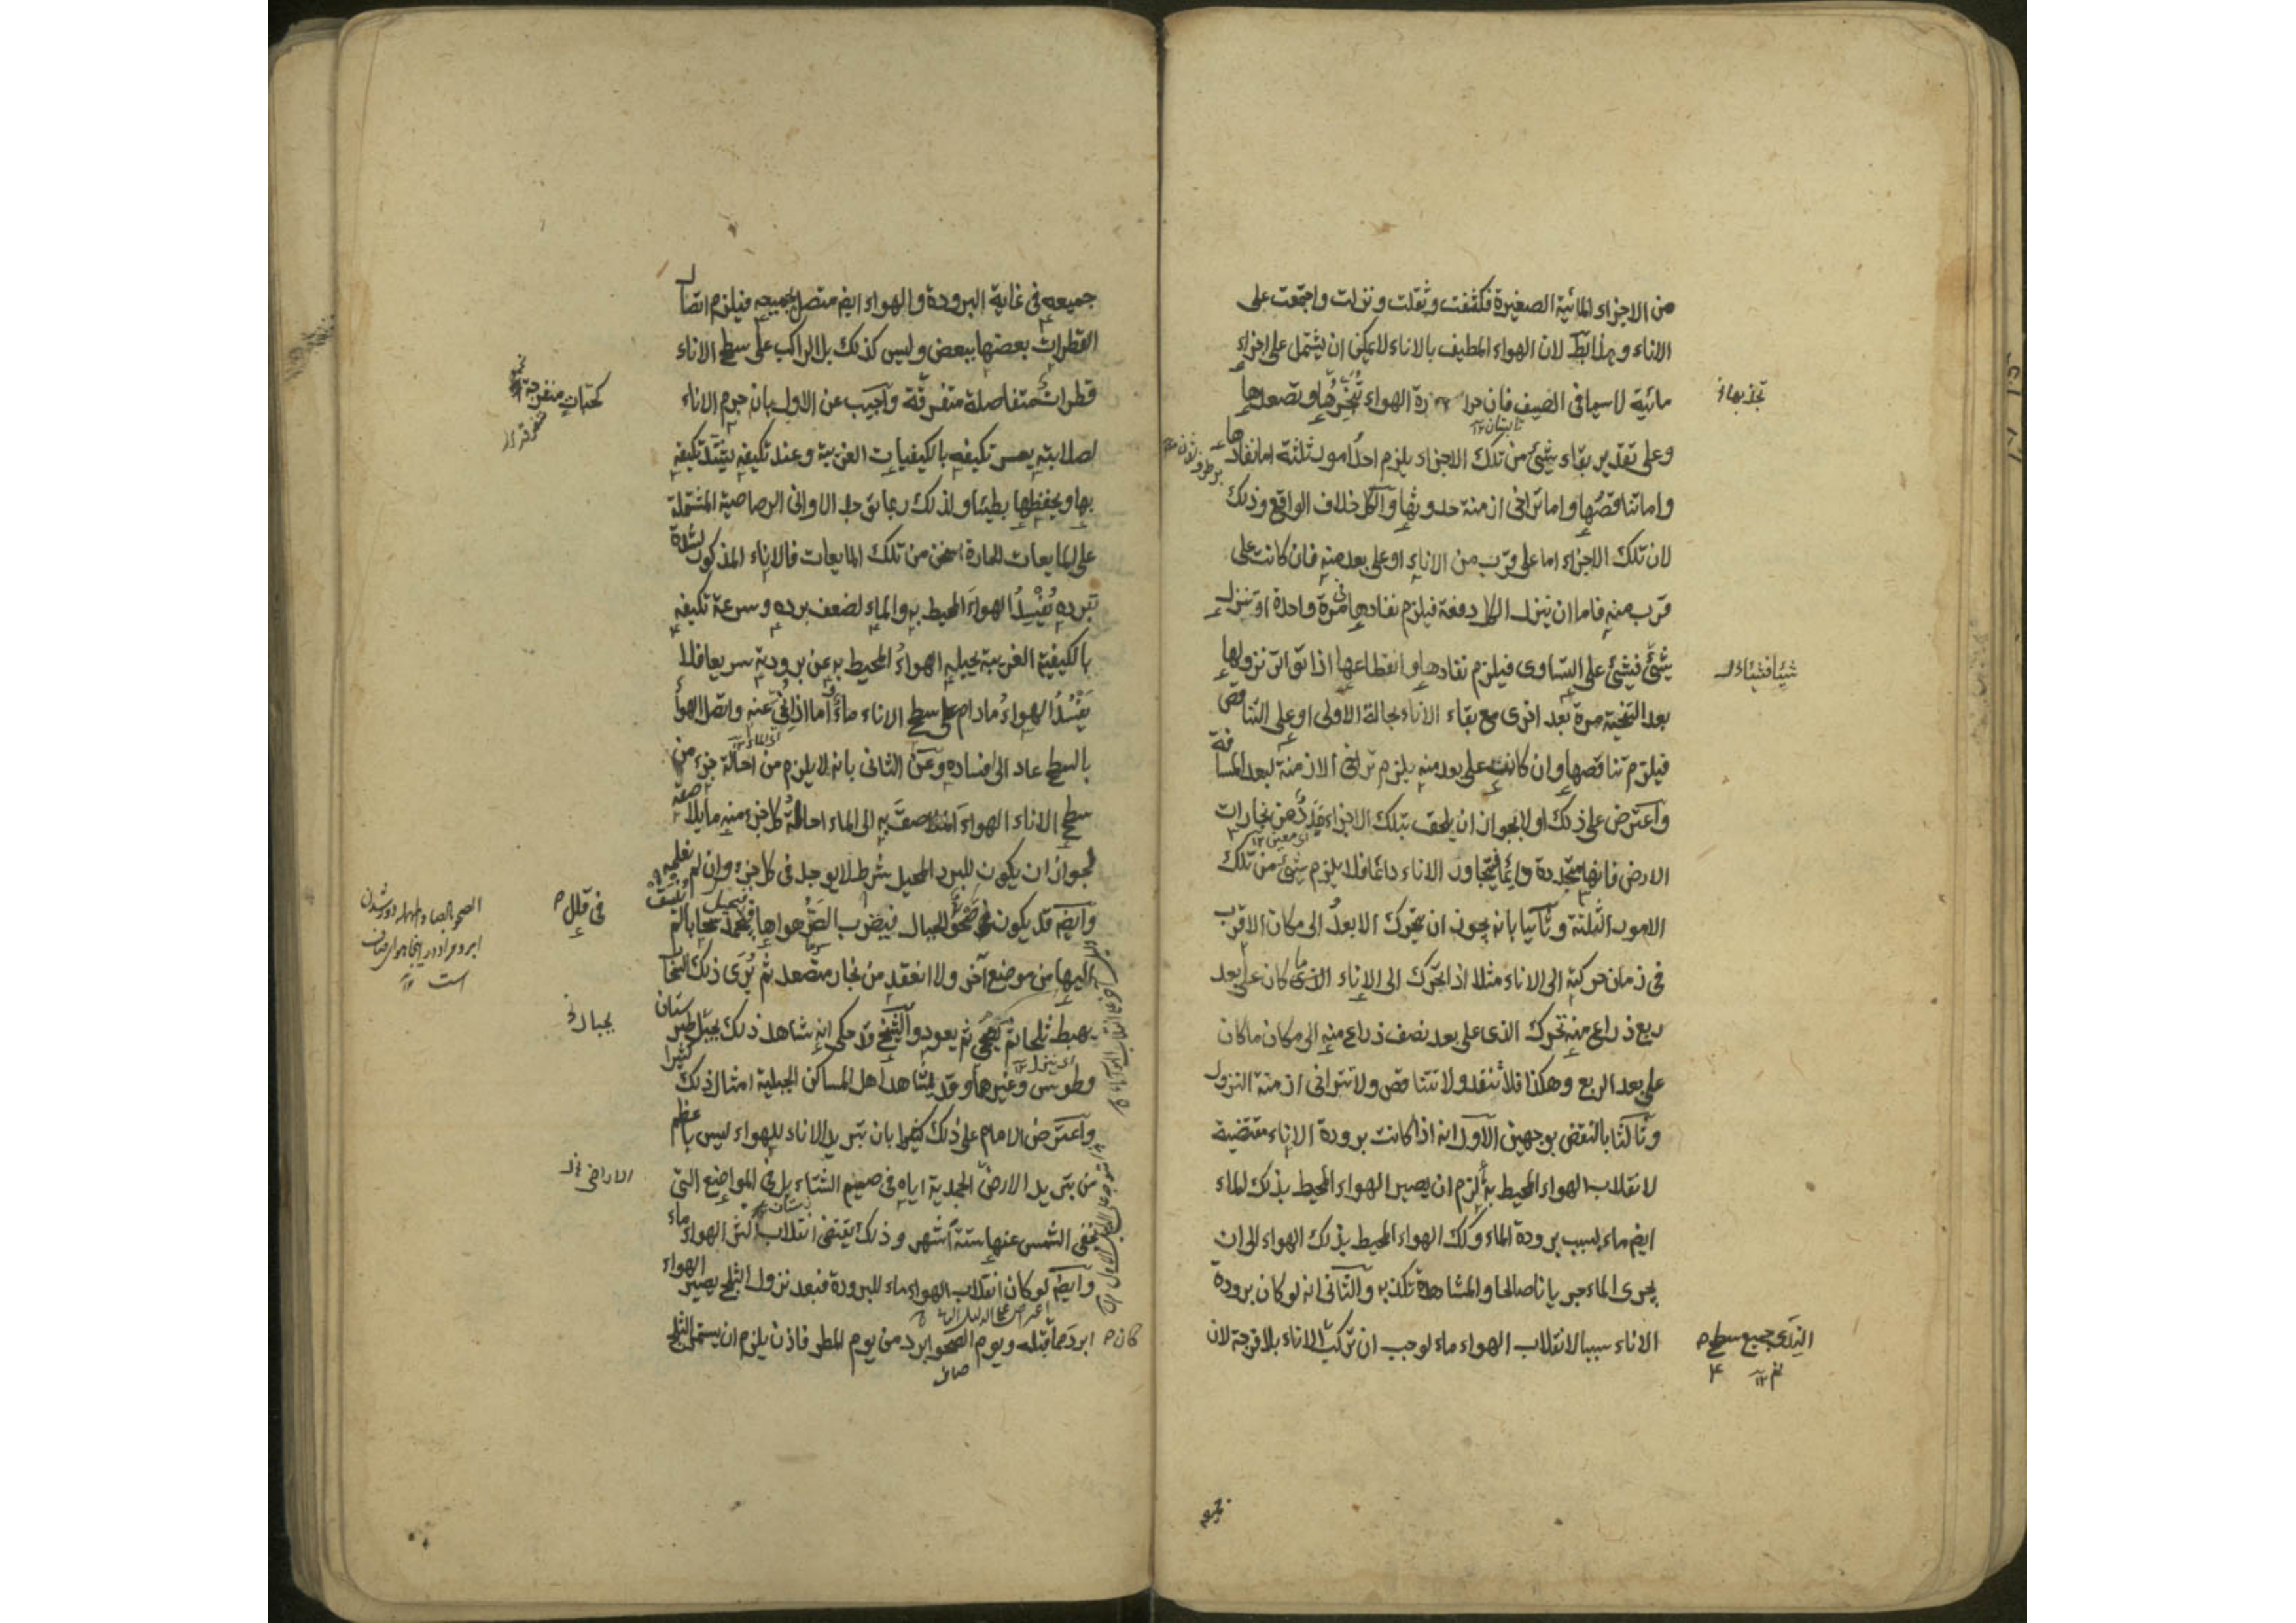 من الاجزاء المائية الصغيرة فكثفت وثقلت ونزلت واجتمعت على
الاناء وهذا بط لان الهواء المطيف بالاناء لا يمكن ان يشتمل على اجزاء
مائية لا سيما فى الصيف فان حرارة الهواء تبخرها وتصعدها
وعلى تقدير بقاء شيئ من تلك الاجزاء يلزم احد امور ثلثة اما نفادها
واما تناقصها واما تراخى ازمنة حدوثها والكل خلاف الواقع وذلك
لان تلك الاجزاء اما على قرب من الاناء او على بعد منه فان كانت على
قرب منه فاما ان ينزل الكل دفعة فيلزم نفادها فى مرة واحدة او ينزل
شيئ فشيئ على التساوى فيلزم نفادها وانقطاعها اذا تواتر نزولها
بعد التنحية مرة بعد اخرى مع بقاء الاناء بحالة الاولى او على التناقص
فيلزم تناقصها وان كانت على بعد منه يلزم تراخى الازمنة لبعد المسافة
واعترض على ذلك اولا بجواز ان يلحق بتلك الاجزاء مدد من بخارات
الارض فانها متجددة دائما فيتجاور الاناء دائما فلا يلزم شيئ من تلك
الامور الثلثة وثانيا بانه يجوز ان يتحرك الابعد الى مكان الاقرب
فى زمان حركته الى الاناء مثلا اذا تحرك الى الاناء ما كان على بعد
ربع ذراع منه تحرك الذى على بعد نصف ذراع منه الى مكان ما كان
على بعد الربع وهكذا فلا تنفد ولا تتناقص ولا تتراخى ازمنة النزول
وثالثا بالنقض بوجهين الاول انه اذا كانت برودة الاناء مقتضية
لانقلاب الهواء المحيط به لزم ان يصير الهواء المحيط بذلك الماء
ايض ماء بسبب برودة الماء وكك الهواء المحيط بذلك الهواء الى ان
يجرى الماء جريانا صالحا والمشاهدة تكذبه والثانى انه لو كان برودة
الاناء سببا لانقلاب الهواء ماء لوجب ان تركب الاناء بلا فرجة لان
شيئا فشيئا
جميع سطح
جميعه
جميعه فى غاية البرودة والهواء ايض متصل بجميعه فيلزم اتصال
القطرات بعضها ببعض وليس كذلك بل الراكب على سطح الاناء
قطرات متفاصلة متفرقة واجيب عن الاول بان جرم الاناء
لصلابته يعسر تكيفه بالكيفيات الغريبة وعند تكيفه يشتد تكيفه
بها ويحفظها بطيئا ولذلك ربما توجد الاوانى الرصاصية المشتملة
على المايعات الحارة اسخن من تلك المايعات فالاناء المذكور لشدة
تبرده يفسد الهواء المحيط به والماء لضعف برده وسرعة تكيفه
بالكيفية الغريبة يحيله الهواء المحيط به عن برودته سريعا فلا
يفسد الهواء ما دام على سطح الاناء ماء اما اذا نحى عنه واتصل الهواء
بالسطح عاد الى افساده وعن الثانى بانه لا يلزم من احالة جزء من
سطح الاناء الهواء الملاصق به الى الماء احالة كل جزء منه ما يلاصقه
لجواز ان يكون للبرد المحيل شرط لا يوجد فى كل جزء وان لم نعلمه
وايض قد يكون صحو الجبال فيضرب الصر هواها فيجمد سحابا لم
ينسق اليها من موضع آخر ولا انعقد من بخار متصعد ثم يرى ذلك السحاب
يهبط ثلجا ثم يضحى ثم يعود والشيخ قد حكى انه شاهد ذلك بجبل طبرستان
وطوس وغيرهما وقد يشاهد اهل المساكن الجبلية امثال ذلك كثيرا
واعترض الامام على ذلك بان تبريد الاناء للهواء ليس باعظم
من تبريد الارض الجمدية اياه فى صميم الشتاء بل فى المواضع التى
تخفى الشمس عنها ستة اشهر وذلك يقتضى انقلاب اكثر الهواء ماء
وايض لو كان انقلاب الهواء ماء للبرودة فبعد نزول الثلج يصير الهواء
ابرد مما قبله ويوم الصحو ابرد من يوم المطر فاذن يلزم ان يستمر الثلج
فى قلل
بجبال
الاراضى
كان